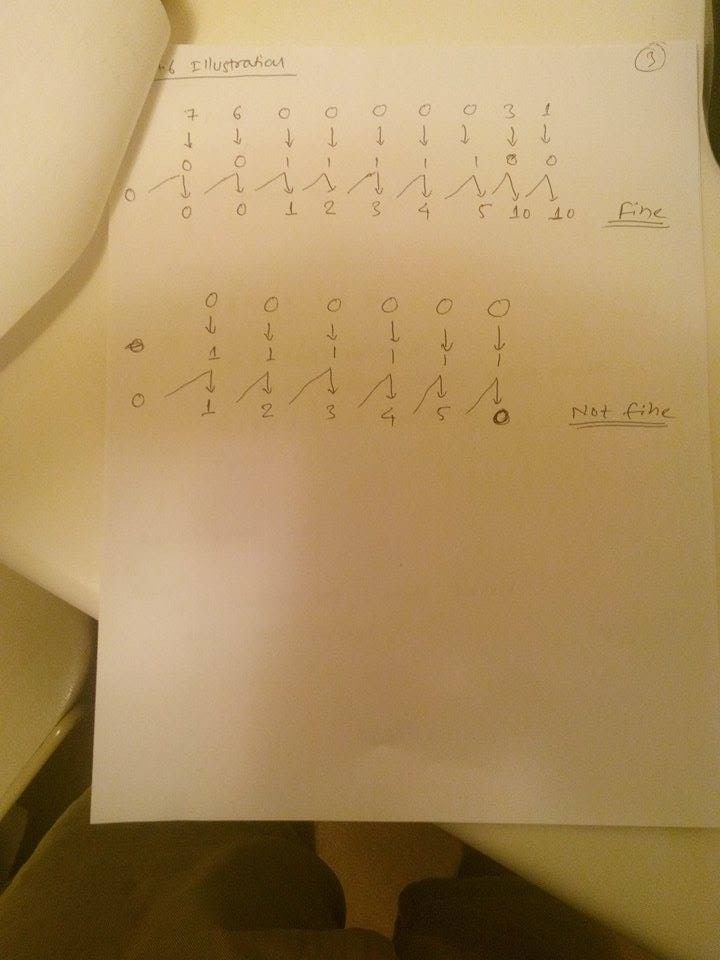 6 Illustration 3
7 6 0 0 0 0 0 3 1
0 0 1 1 1 1 1 0 0
0
0 0 1 2 3 4 5 10 10 Fine
0 0 0 0 0 0
1 1 1 1 1 1
0 1 2 3 4 5 0 Not fine